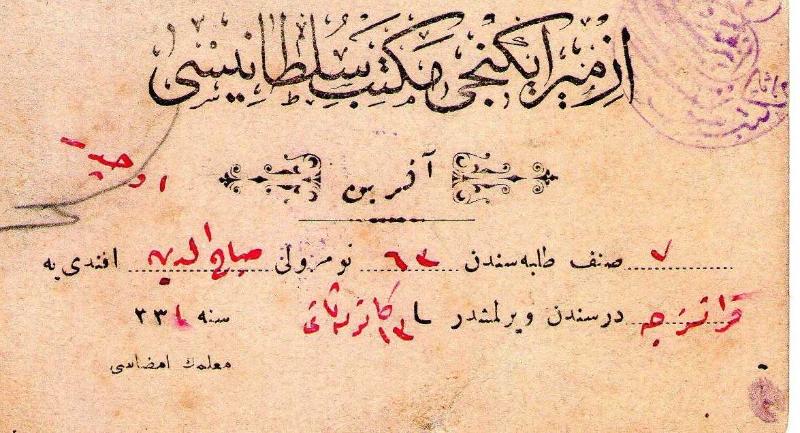 ازمیر ایكنجی مكتب سلطانیسی
آفرین
٧ صنف طلبه‌سندن ٦٣ نومرولی صباح الدین افندی‌یه
درسندن ویرلمشدر ١٣ كانون ثانی سنه ٣٣١
معلمك امضاسی